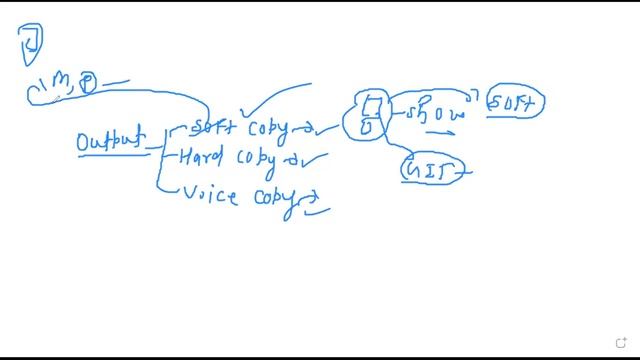 M, P
Output
Soft copy
Hard copy
Voice copy
show
Soft